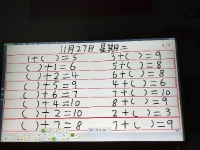 11月27日 星期二
1+( )=5 3+( )=9
( )+1=6 5+( )=8
( )+2=4 6+( )=8
( )+5=9 4+( )=6
( )+6=7 7+( )=10
( )+4=10 8+( )=9
( )+2=10 2+( )=3
( )+7=8 7+( )=9